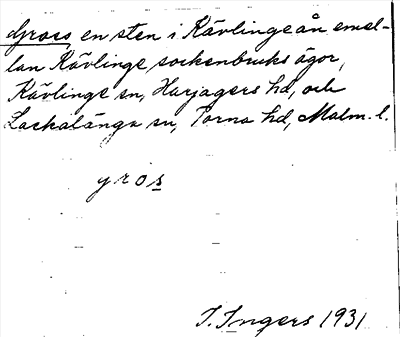 Gross en sten i Kävlingeån emel-
lan Kävlinge sockenbruks ägor,
Kävlinge sn, Harjagers hd, och
Lackalänga sn, Torna hd, Malm. l.
gros
I. Ingers 1931